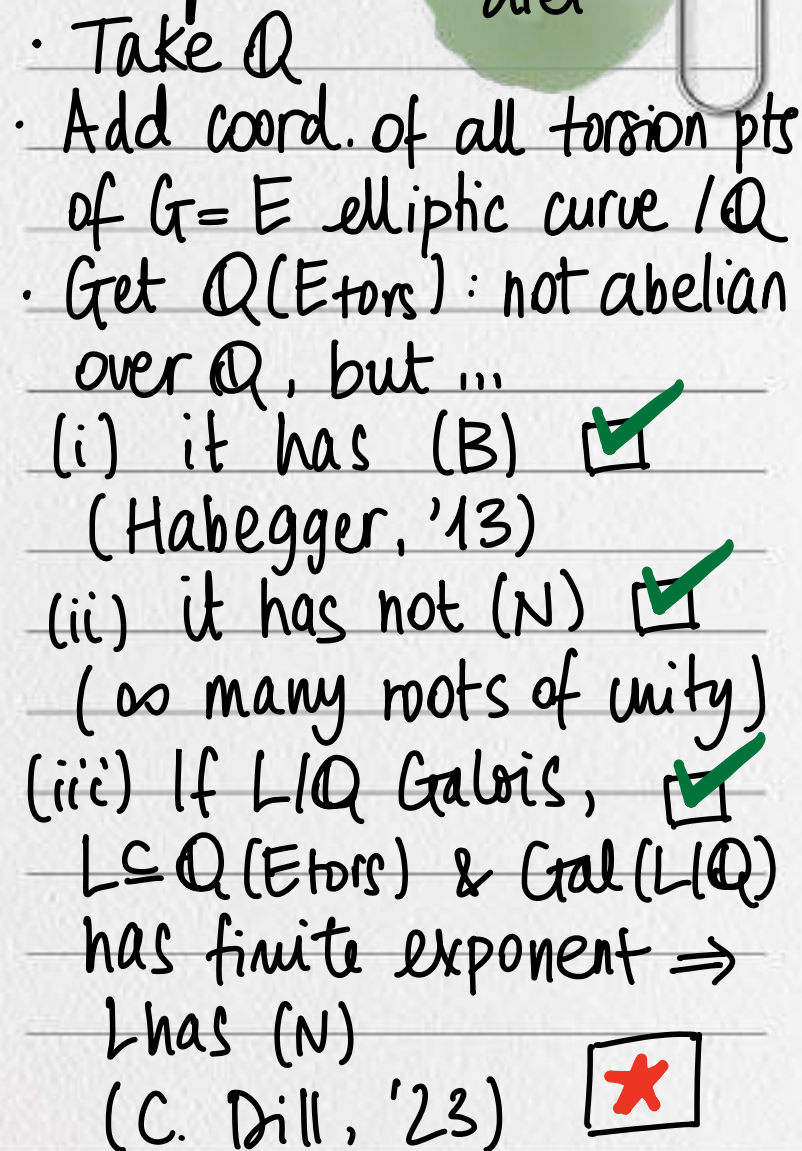 · Take Q
· Add coord. of all torsion pts
of G=E elliptic curve /Q
· Get Q(Etors): not abelian
over Q, but ...
(i) it has (B)
(Habegger, '13)
(ii) it has not (N)
(∞ many roots of unity)
(iii) If L/Q Galois,
L⊆Q(Etors) & Gal(L/Q)
has finite exponent ⇒
L has (N)
(C. Dill, '23)